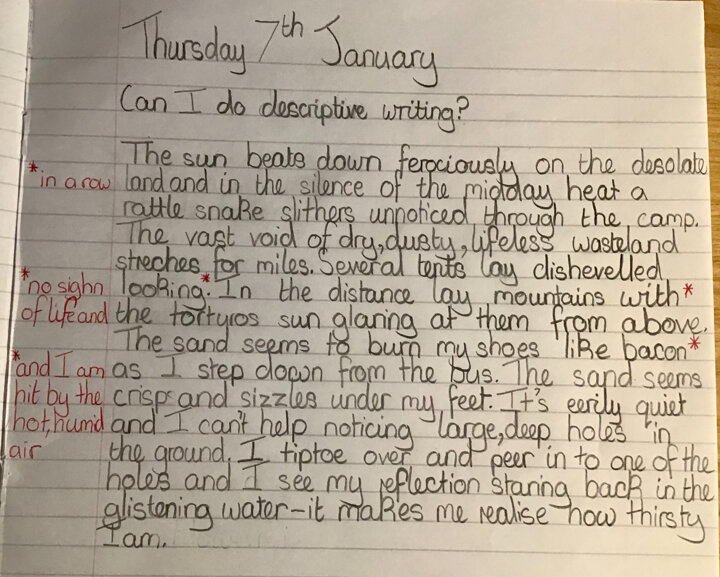 Thursday 7th January
Can I do descriptive writing?
The sun beats down ferociously on the desolate
*in a row
land and in the silence of the midday heat a
rattle snake slithers unnoticed through the camp.
The vast void of dry, dusty, lifeless wasteland
streches for miles. Several tents lay dishevelled
*no sighn
looking.* In the distance lay mountains with*
of life and
the tortyros sun glaring at them from above.
The sand seems to burn my shoes like bacon*
*and I am
as I step down from the bus. The sand seems
hit by the
crisps and sizzles under my feet. It's eerily quiet
hot, humid
and I can't help noticing large, deep holes in
air
the ground. I tiptoe over and peer in to one of the
holes and I see my reflection staring back in the
glistening water-it makes me realise how thirsty
I am.